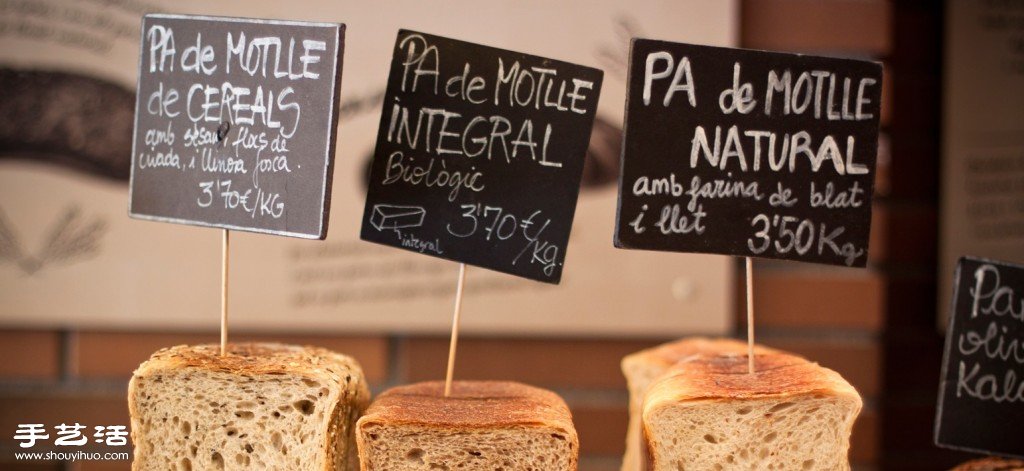 PA de MOTLLE
de CEREALS
amb sèsam, flocs de
civada, i llinora
3'70€/KG
PA de MOTLLE
iNTEGRAL
Biològic
3'70€/KG.
integral
PA de MOTLLE
NATURAL
amb farina de blat
i llet
3'50 KG
Pa
oliv
Kala
手艺活
www.shouyihuo.com